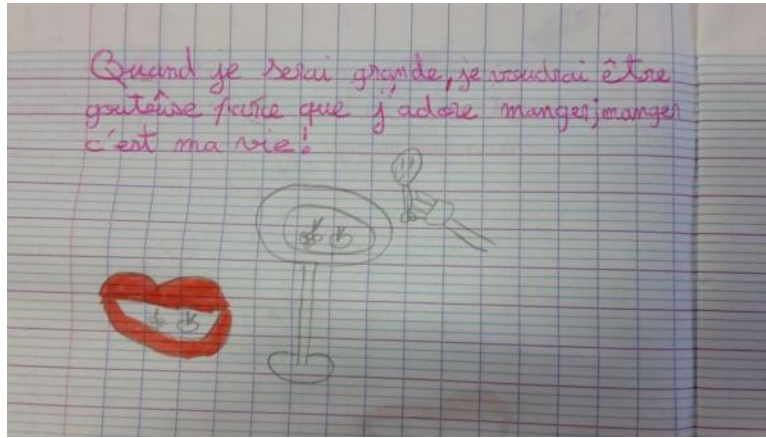 Quand je serai grande, je voudrai être
gouteûse parce que j'adore manger, manger
c'est ma vie!